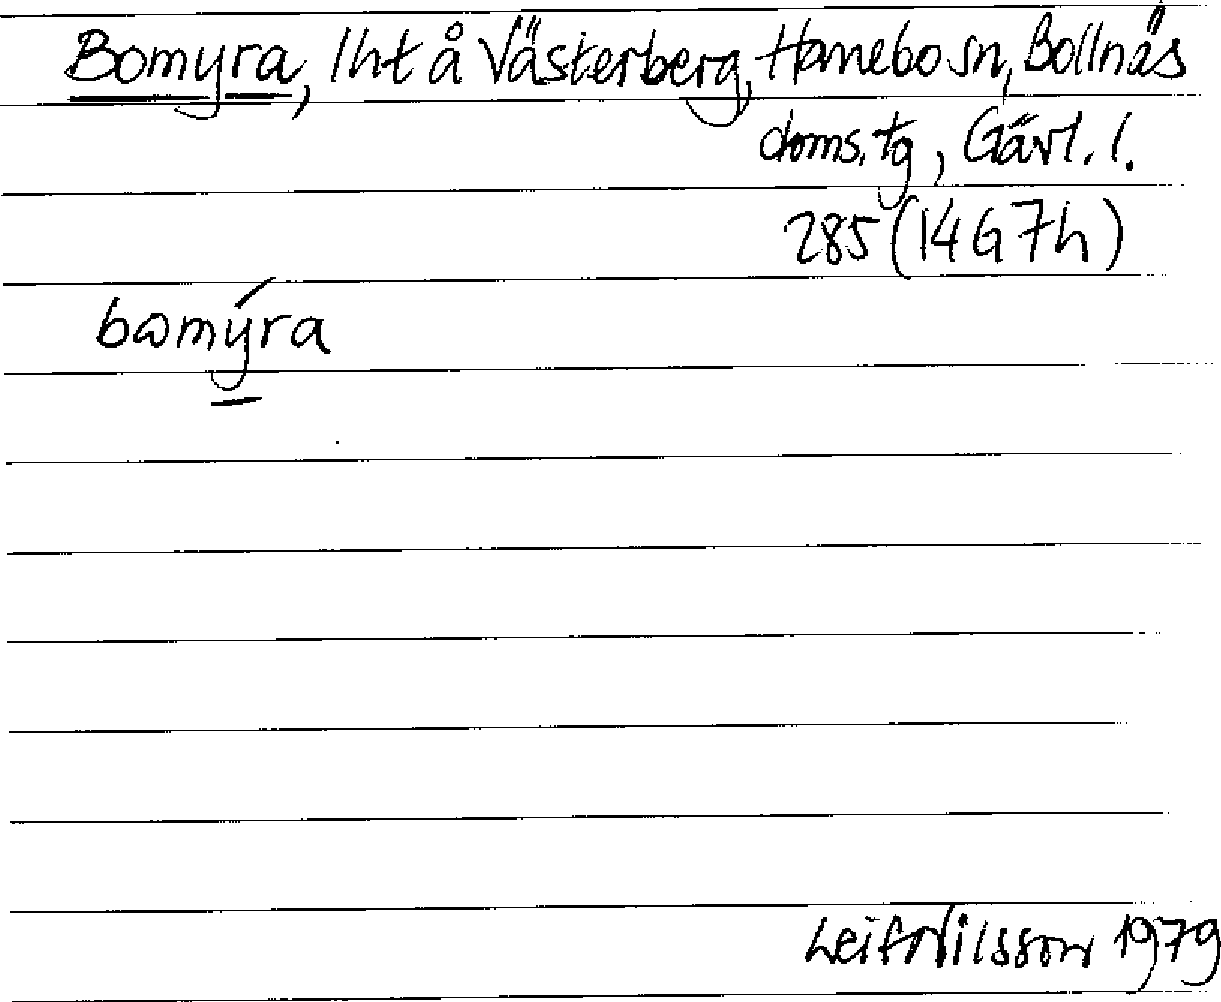 Bomyra, lht å Västerberg, Hanebo sn, Bollnäs
doms.tg, Gävl. l.
285 (14G7h)
bωmýra
Leif Nilsson 1979